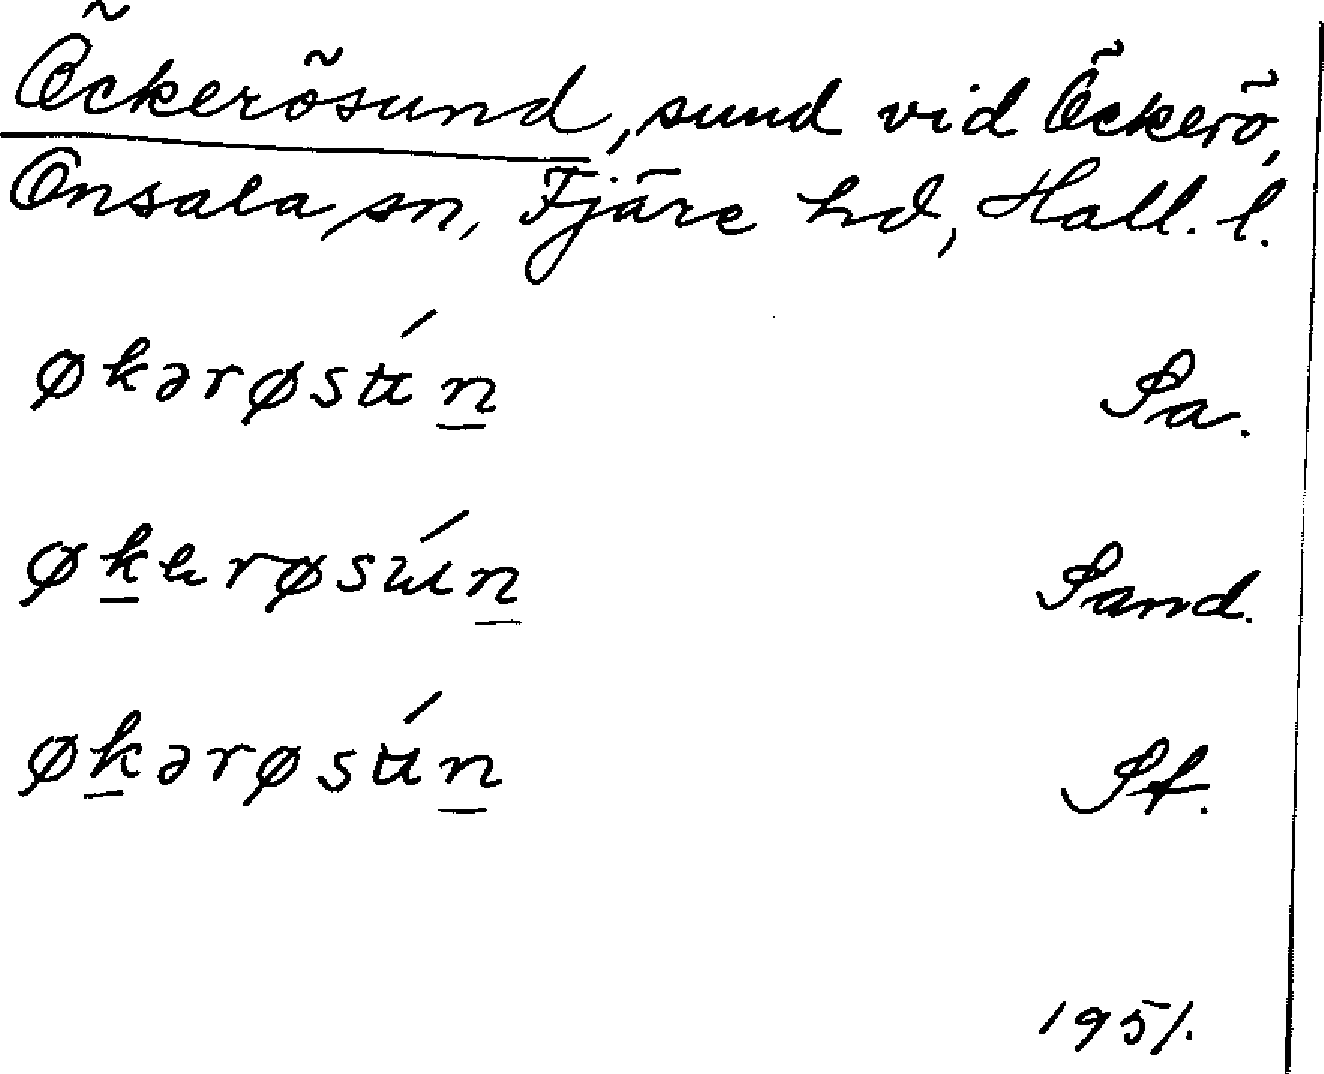 Öckerösund, sund vid Öckerö,
Onsala sn, Fjäre hd, Hall. l.
økərøsʉ́n̲ Sa.
øk̲erøsʉ́n̲ Sand.
øk̲ərøsʉ́n̲ St.
1951.